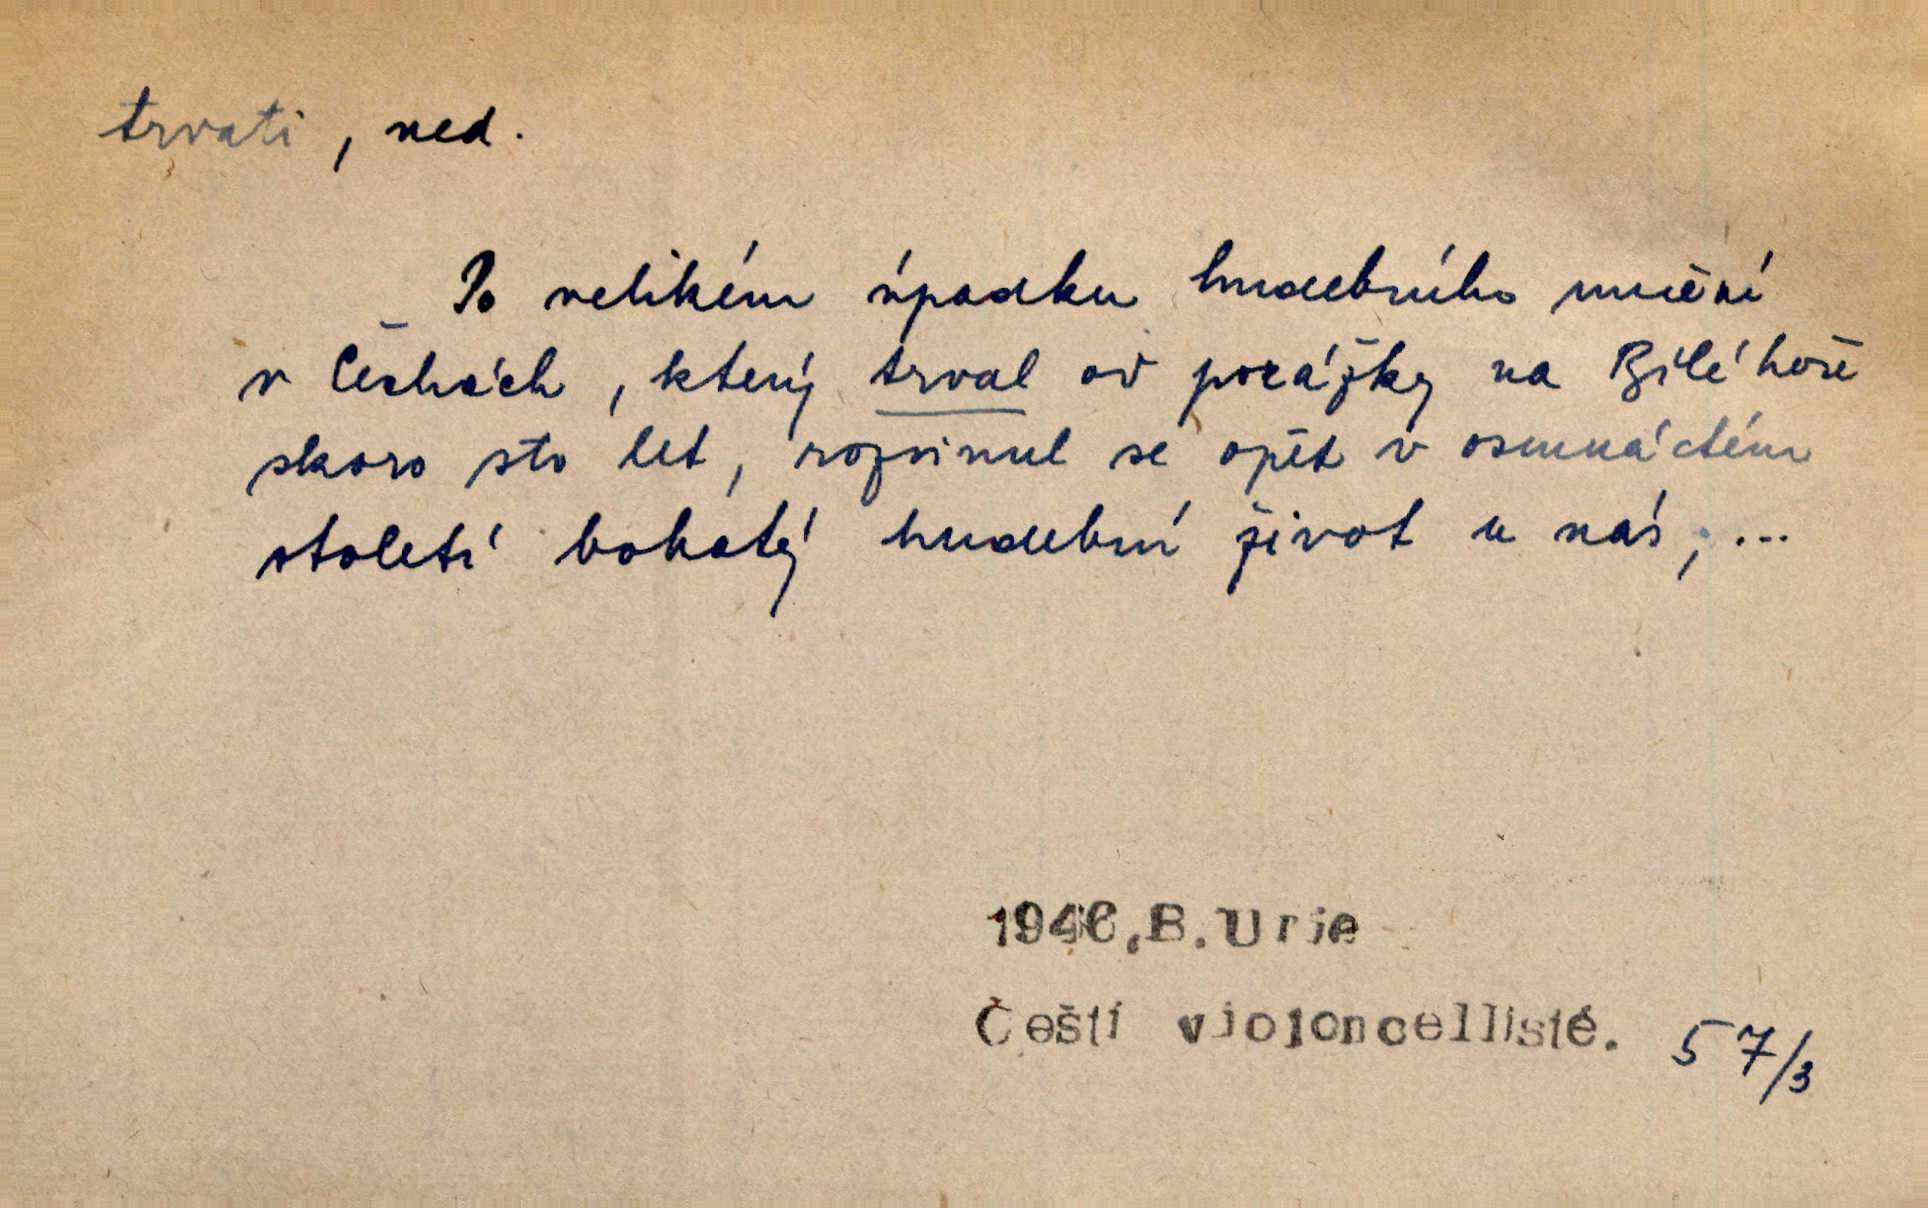 trvati, ned.
Po velikém úpadku hudebního umění
v Čechách, který trval od porážky na Bílé hoře
skoro sto let, rozvinul se opět v osmnáctém
století bohatý hudební život u nás, ...
1946, B. Urie
Čeští violoncellisté. 57/3